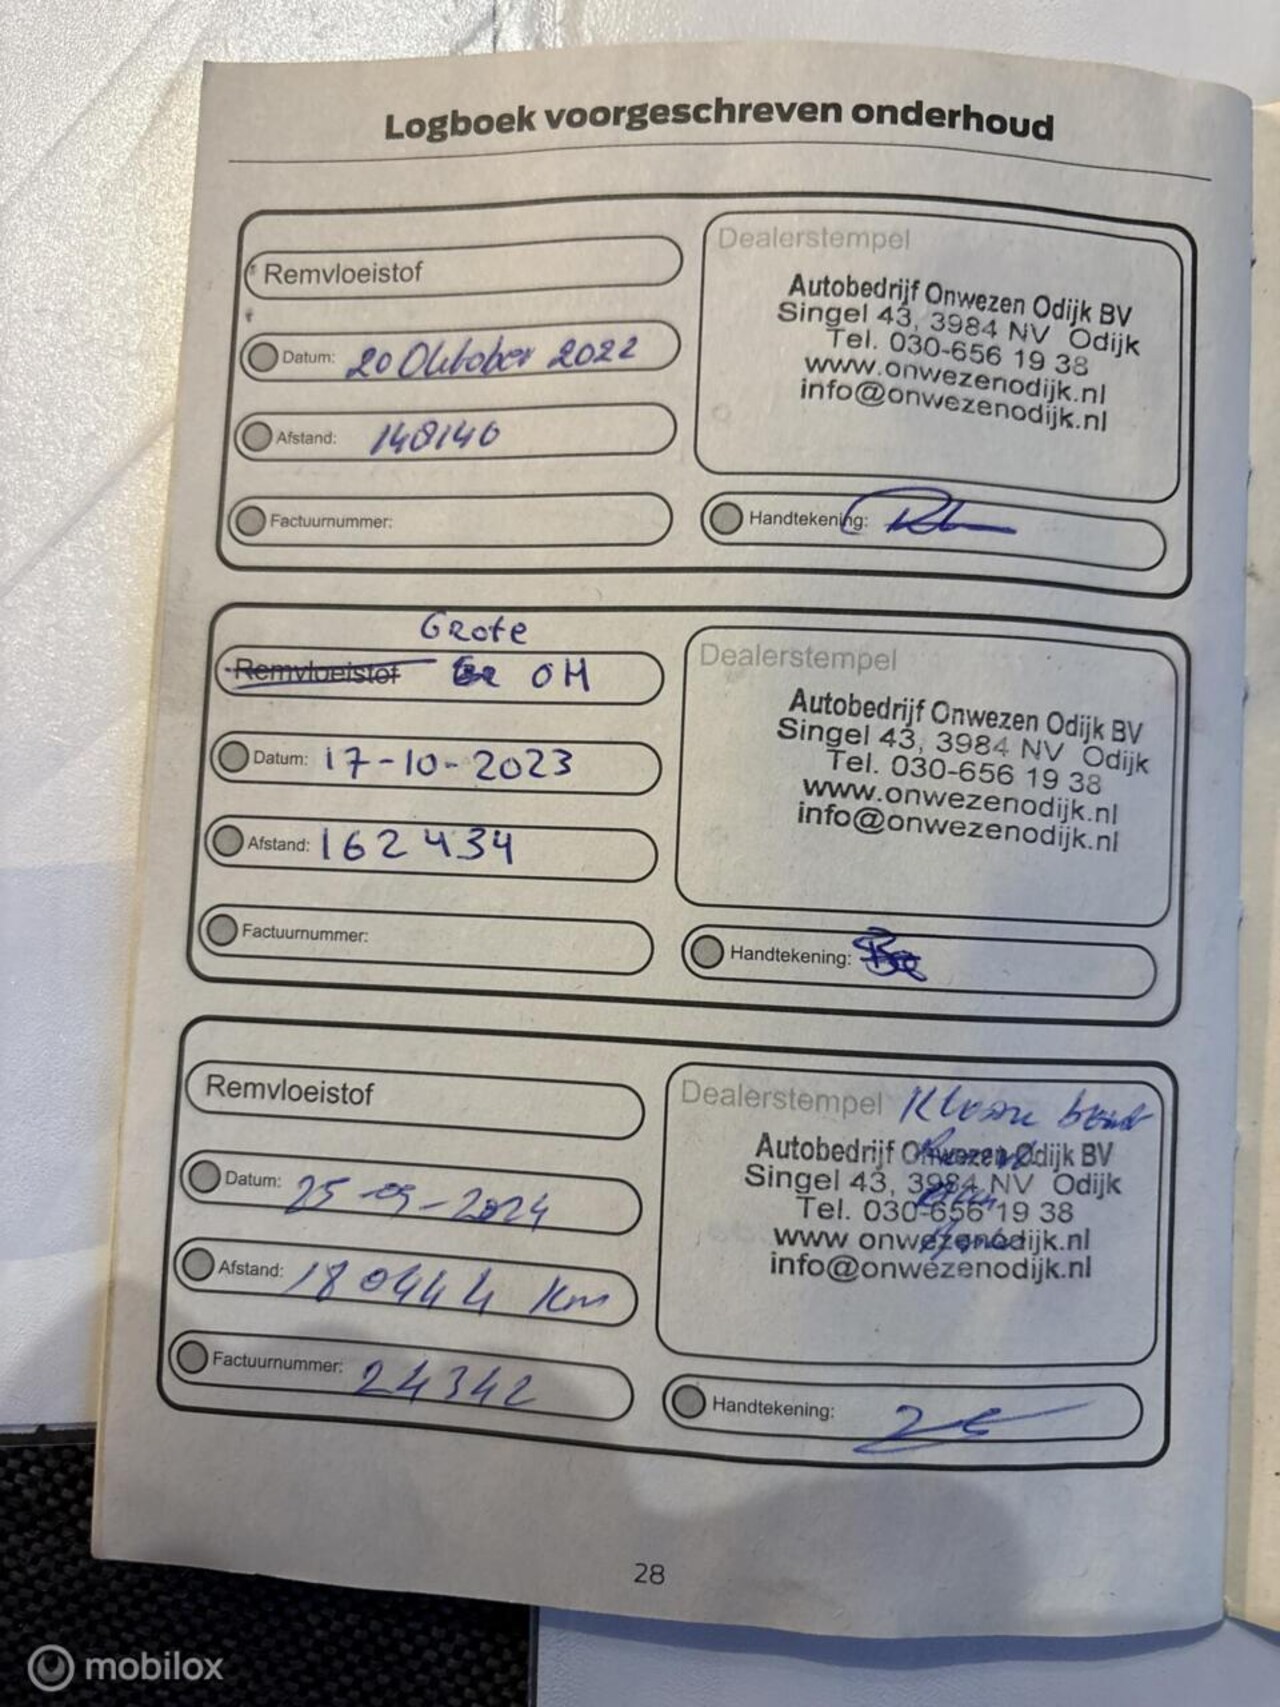 Logboek voorgeschreven onderhoud
Remvloeistof
Datum: 20 Oktober 2022
Afstand: 148140
Factuurnummer:
Dealerstempel
Autobedrijf Onwezen Odijk BV
Singel 43, 3984 NV Odijk
Tel. 030-656 19 38
www.onwezenodijk.nl
info@onwezenodijk.nl
Handtekening:
Grote
Remvloeistof OH
Datum: 17-10-2023
Afstand: 162434
Factuurnummer:
Dealerstempel
Autobedrijf Onwezen Odijk BV
Singel 43, 3984 NV Odijk
Tel. 030-656 19 38
www.onwezenodijk.nl
info@onwezenodijk.nl
Handtekening:
Remvloeistof
Datum: 25-09-2024
Afstand: 180444 Km
Factuurnummer: 24342
Dealerstempel
Autobedrijf Onwezen Odijk BV
Singel 43, 3984 NV Odijk
Tel. 030-656 19 38
www onwezenodijk.nl
info@onwezenodijk.nl
Handtekening:
28
mobilox